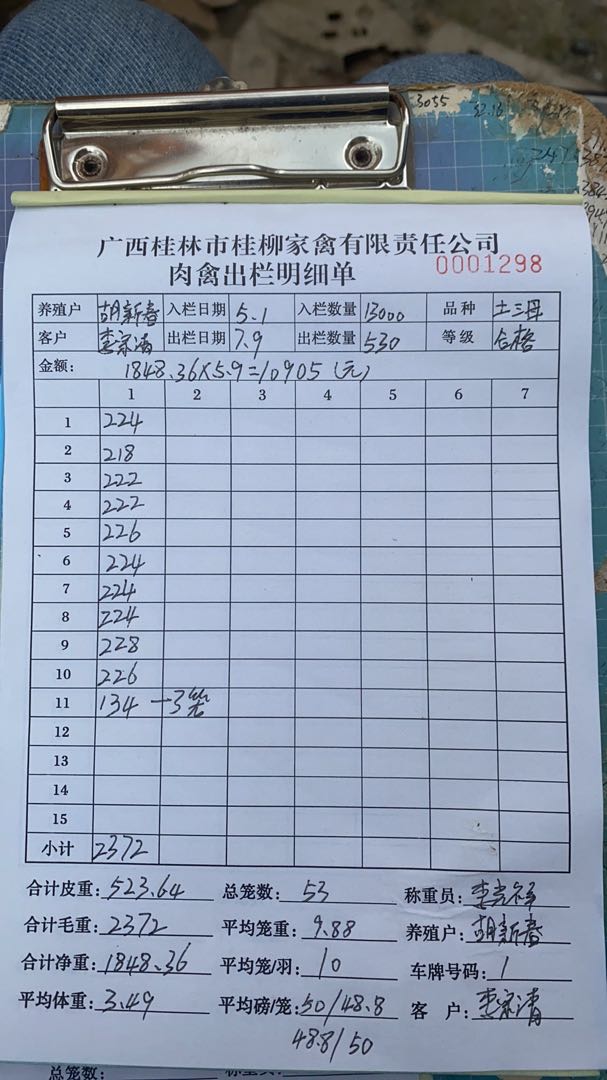 3055
广西桂林市桂柳家禽有限责任公司
肉禽出栏明细单 0001298
养殖户 胡新春 入栏日期 5.1 入栏数量 13000 品种 土三母
客户 李家清 出栏日期 7.9 出栏数量 530 等级 合格
金额: 1848.36×5.9=10905(元)
1 2 3 4 5 6 7
1 224
2 218
3 222
4 222
5 226
6 224
7 224
8 224
9 228
10 226
11 134 —3笼
12
13
14
15
小计 2372
合计皮重: 523.64 总笼数: 53 称重员:
合计毛重: 2372 平均笼重: 9.88 养殖户: 胡新春
合计净重: 1848.36 平均笼/羽: 10 车牌号码: 1
平均体重: 3.49 平均磅/笼: 50/48.8 客 户: 李家清
48.8/50
总笼数: